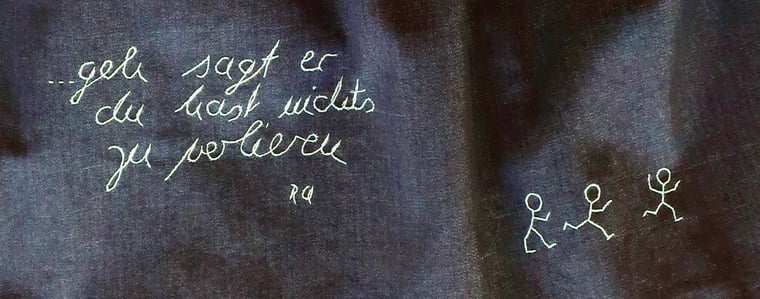 ...geh sagt er
du hast nichts
zu verlieren
RA